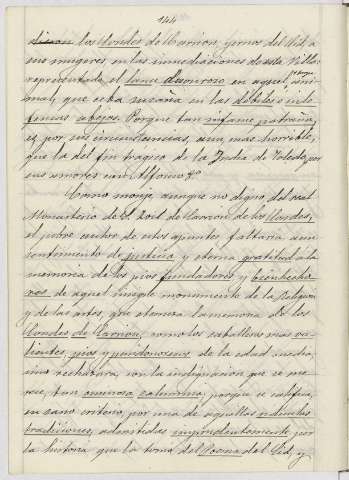 144
dieron los Condes de Carrion, yernos del Cid, a
sus mugeres, en las inmediaciones de esta Villa
representado el lance deshonroso en aquel
porque
que esta hazaña en las débiles e inde-
fensas
Porque tan infame patraña,
es por sus circunstancias, aun mas horrible,
que la del fin tragico de la Judia de Toledo, por
sus amores con Alfonso 8º
Como monje aunque no digno del real
Monasterio de S. Zoil de Carrion de los Condes,
el pobre autor de estos apuntes faltaria a un
sentimiento de justicia y eterna gratitud a la
memoria de los pios fundadores y bienhecho-
res de aquel insigne monumento de la Religion
y de las artes, que eterniza la memoria de los
Condes de Carrion, como los caballeros mas va-
lientes, pios y pundonorosos de la edad media,
sino rechazara, con la indignacion que se me-
rece, tan ominosa calumnia, porque se califica,
en sano criterio, por una de aquellas ridiculas
tradiciones, admitidas imprudentemente, por
la historia que la toma del Poema del Cid, y